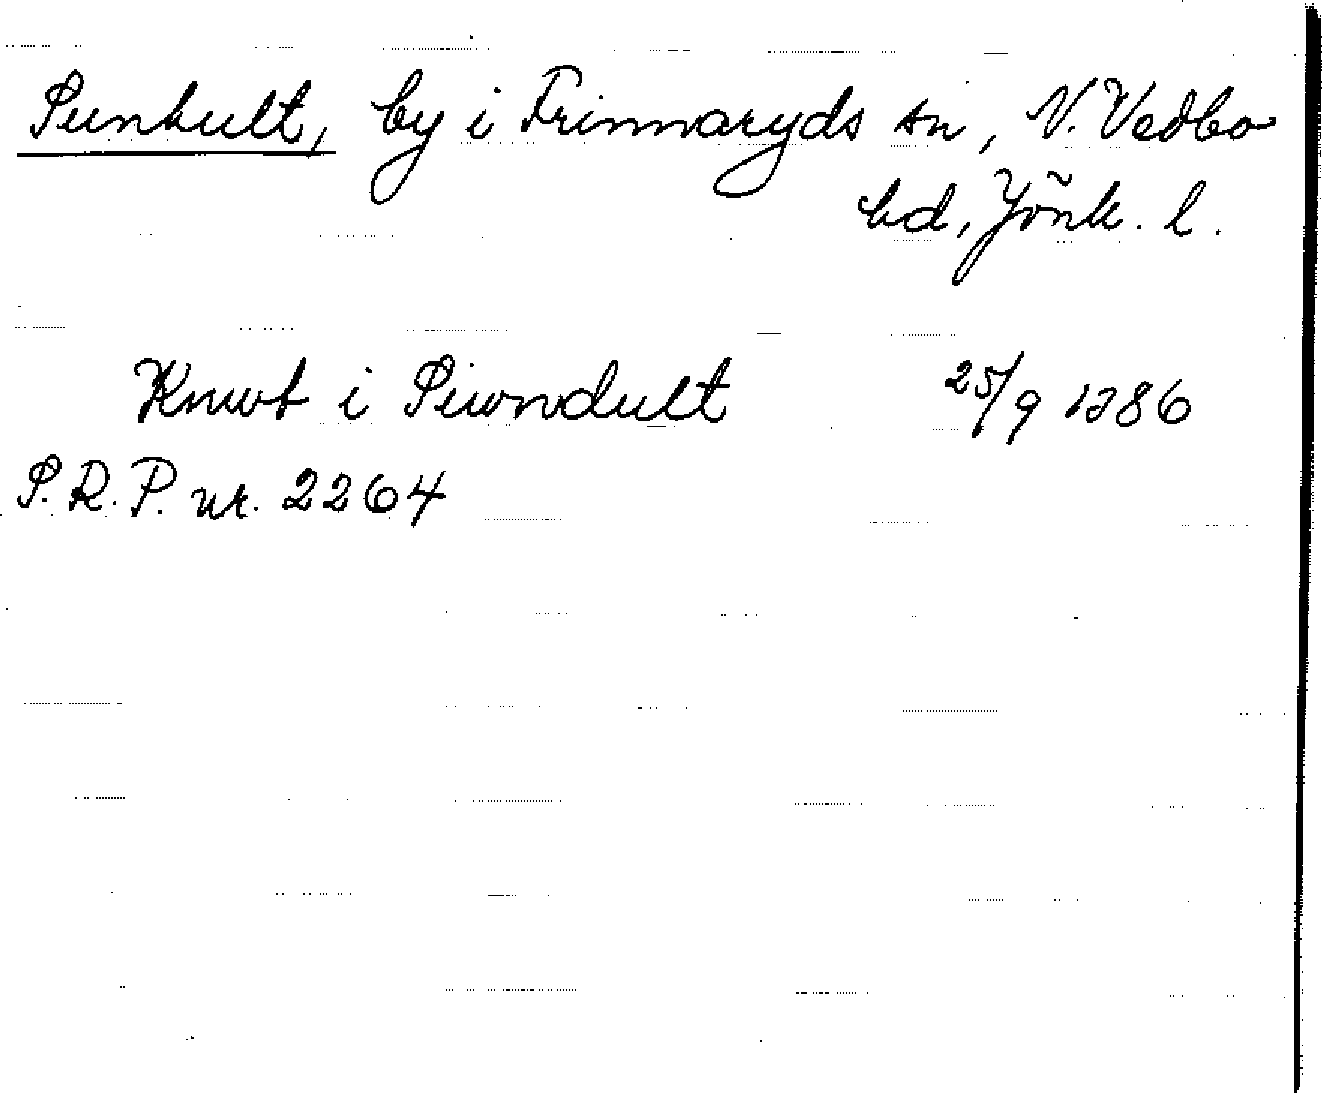 Sunhult, by i Frinnaryds sn, N. Vedbo
hd, Jönk. l.
Knwt i Siwndult 25/9 1386
S.R.P. nr. 2264